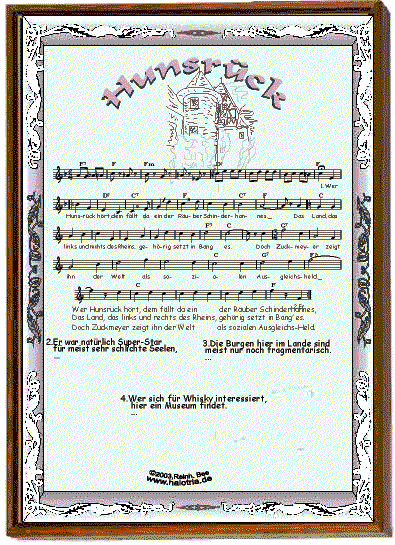 Hunsrück
F
1. Wer
Huns-rück hört, dem fällt da ein der Räu-ber Schin-der-han-nes_ Das Land, das
links und rechts des Rheins, ge-hö-rig setzt in Bang es. Doch Zuck-may-er zeigt
ihn der Welt als so-zi-a-len Aus-gleichs-held_
Wer Hunsrück hört, dem fällt da ein der Räuber Schinderhannes,
Das Land, das links und rechts des Rheins, gehörig setzt in Bang'es.
Doch Zuckmeyer zeigt ihn der Welt als sozialen Ausgleichs-Held.
2.Er war natürlich Super-Star
für meist sehr schlichte Seelen,
...
3.Die Burgen hier im Lande sind
meist nur noch fragmentarisch.
...
4.Wer sich für Whisky interessiert,
hier ein Museum findet.
...
©2003,Reinh. Bee
www.halotria.de